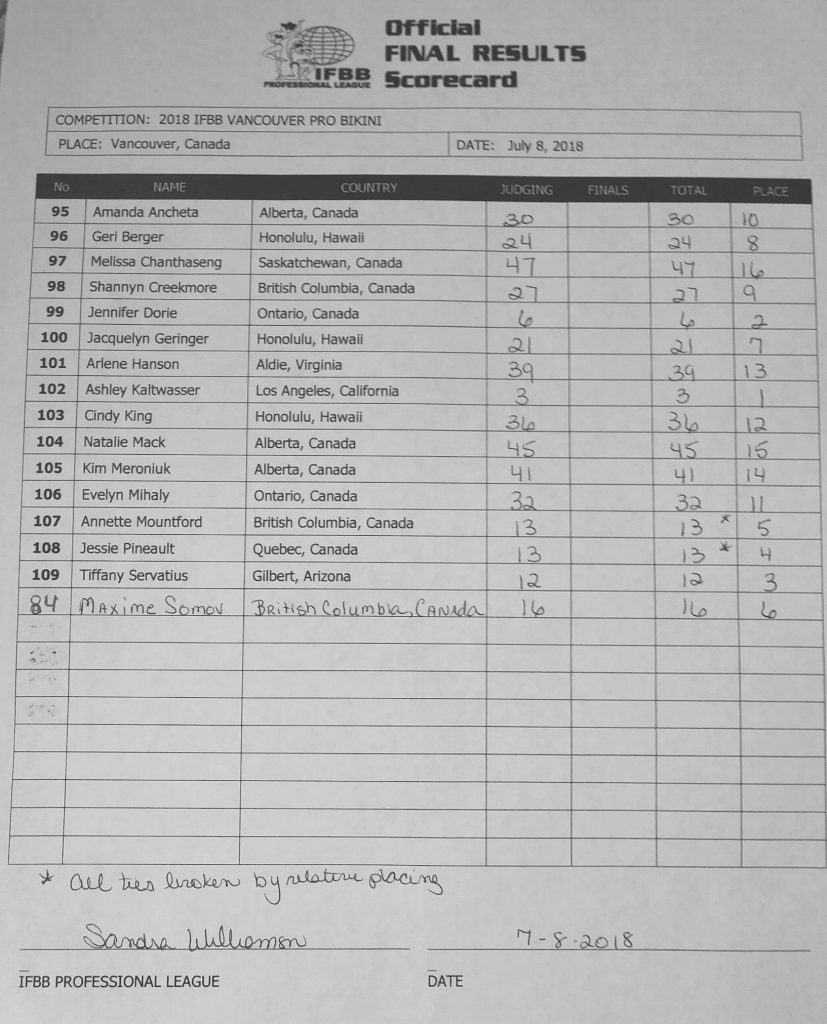 Official
FINAL RESULTS
IFBB Scorecard
PROFESSIONAL LEAGUE
COMPETITION: 2018 IFBB VANCOUVER PRO BIKINI
PLACE: Vancouver, Canada DATE: July 8, 2018
No NAME COUNTRY JUDGING FINALS TOTAL PLACE
95 Amanda Ancheta Alberta, Canada 30 30 10
96 Geri Berger Honolulu, Hawaii 24 24 8
97 Melissa Chanthaseng Saskatchewan, Canada 47 47 16
98 Shannyn Creekmore British Columbia, Canada 27 27 9
99 Jennifer Dorie Ontario, Canada 6 6 2
100 Jacquelyn Geringer Honolulu, Hawaii 21 21 7
101 Arlene Hanson Aldie, Virginia 39 39 13
102 Ashley Kaltwasser Los Angeles, California 3 3 1
103 Cindy King Honolulu, Hawaii 36 36 12
104 Natalie Mack Alberta, Canada 45 45 15
105 Kim Meroniuk Alberta, Canada 41 41 14
106 Evelyn Mihaly Ontario, Canada 32 32 11
107 Annette Mountford British Columbia, Canada 13 13 * 5
108 Jessie Pineault Quebec, Canada 13 13 * 4
109 Tiffany Servatius Gilbert, Arizona 12 12 3
84 Maxime Somov British Columbia, Canada 16 16 6
* All ties broken by relative placing
Sandra Williamson 7-8-2018
IFBB PROFESSIONAL LEAGUE DATE